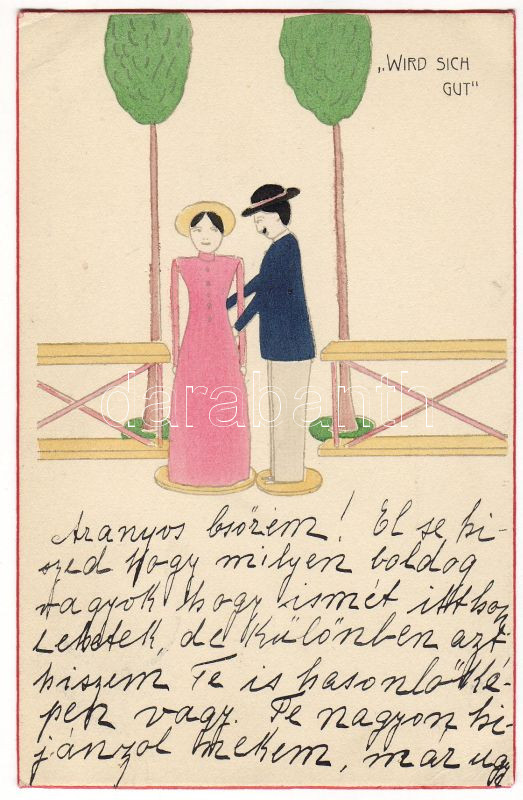 „WIRD SICH
GUT"
darabanth
Aranyos Csőrém! El se hi-
szed hogy milyen boldog
vagyok hogy ismét itthon
lehetek, de különben azt
hiszem Te is hasonlóké-
pen vagy. Te nagyon hi-
jánzol nekem, már úgy